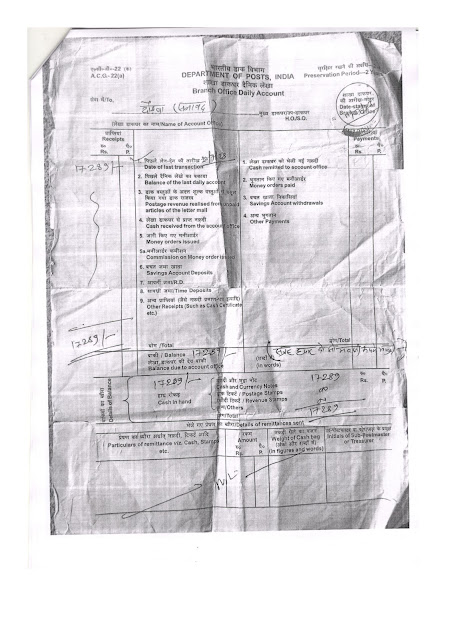 एसी-जी-22 (क)
A.C.G.-22(a)
भारतीय डाक विभाग
DEPARTMENT OF POSTS, INDIA
शाखा डाकघर दैनिक लेखा
Branch Office Daily Account
Preservation Period—2
शाखा डाकघर
की तारीख मोहर
Date-stamp of
Branch Office
मुख्य डाकघर/उप-डाकघर
H.O./S.O.
(लेखा डाकघर का नाम/Name of Account Office)
प्राप्तियां
Receipts
रु० पै०
Rs. P.
Payments
रु० पै०
Rs. P.
17289/-
पिछले लेन-देन की तारीख
Date of last transaction
2. पिछले दैनिक लेखे का बकाया
Balance of the last daily account
Postage revenue realised from
articles of the letter mail
4. लेखा डाकघर से प्राप्त नकदी
Cash received from the account office
5. जारी किए गए मनीआर्डर
Money orders issued
5a. मनीआर्डर कमीशन
Commission on Money order issued
6. बचत बैंक जमा
Savings Account Deposits
7. आवर्ती जमा/R.D.
8. सावधी जमा/Time Deposits
Other Receipts (Such as Cash Certificate
etc.)
1. लेखा डाकघर को भेजी गई नकदी
Cash remitted to account office
2. भुगतान किए गए मनीआर्डर
Money orders paid
Savings Account withdrawals
4. अन्य भुगतान
Other Payments
17289/-
योग /Total
योग/Total
बाकी / Balance 17289/-
Balance due to account office
(शब्दों में)
(in words)
बाकी का ब्यौरा
Details of Balance
17289/-
हाथ रोकड़
Cash in hand
नकदी और मुद्रा नोट
Cash and Currency Notes
डाक टिकटें / Postage Stamps
रसीदी टिकटें / Revenue Stamps
अन्य/Others
योग/Total
17289/-
17289/-
भेजे गए प्रेषण के ब्यौरे/Details of remittances sent
(Particulars of remittance viz. Cash, Stamps
etc.
रकम
Amount
रु० पै०
Rs. P.
Weight of Cash bag
(in figures and words)
Initials of Sub-Postmaster
or Treasurer
NIL